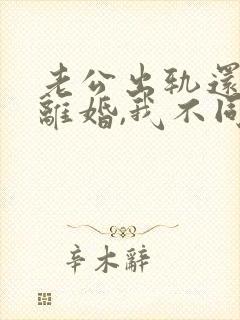 老公出轨還
離婚,我不同
辛木辭